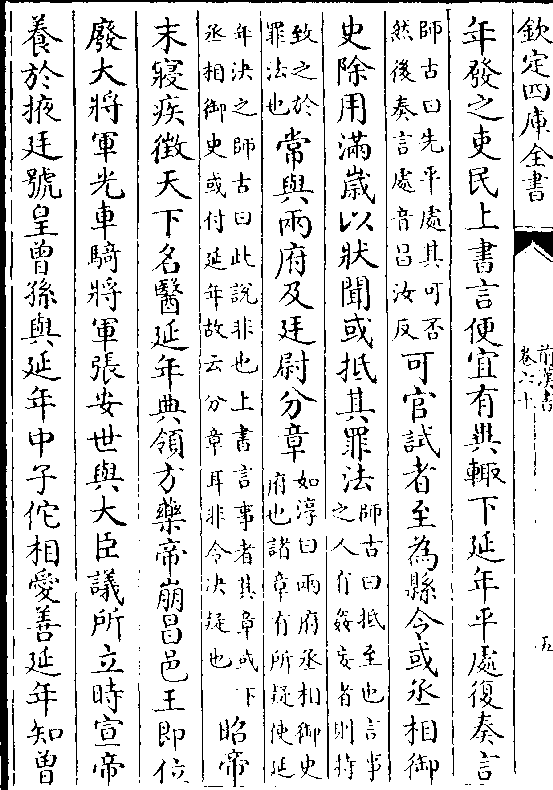 欽定四庫全書
前漢書
卷六十
五
年發之吏民上書言便宜有異輒下延年平處復奏言
師古曰先平處其可否
然後奏言處音昌汝反
可官試者至為縣令或丞相御
史除用滿歲以狀聞或抵其罪法
師古曰抵至也言事
之人有姦妄者則持
致之於
罪法也
常與兩府及廷尉分章
如淳曰兩府丞相御史
府也諸章有所疑使延
年決之師古曰此說非也上書言事者其章或下
丞相御史或付延年故云分章耳非令决疑也
昭帝
末寢疾徵天下名醫延年典領方藥帝崩昌邑王即位
廢大將軍光車騎將軍張安世與大臣議所立時宣帝
養於掖廷號皇曾孫與延年中子佗相愛善延年知曾